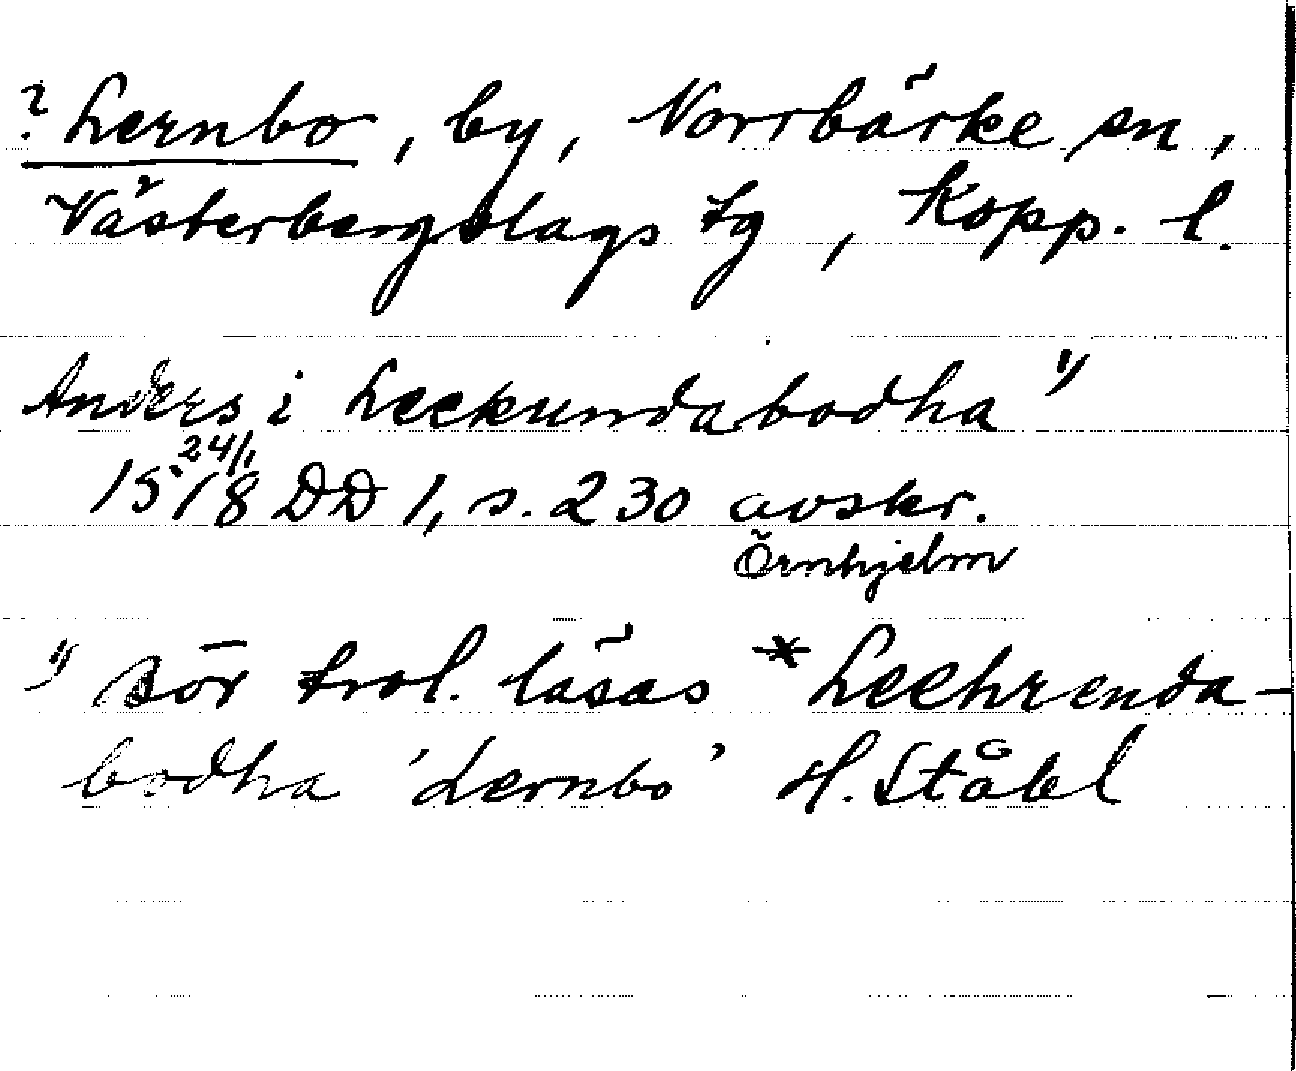 ? Lernbo, by, Norrbärke sn,
Västerbergslags tg, Kopp. l.
Anders i Leekundabodha 1)
24/1
1518 DD 1, s. 230 avskr.
Örnhjelm
1) Bör trol. läsas *Leehrenda-
bodha 'Lernbo' H. Ståhl